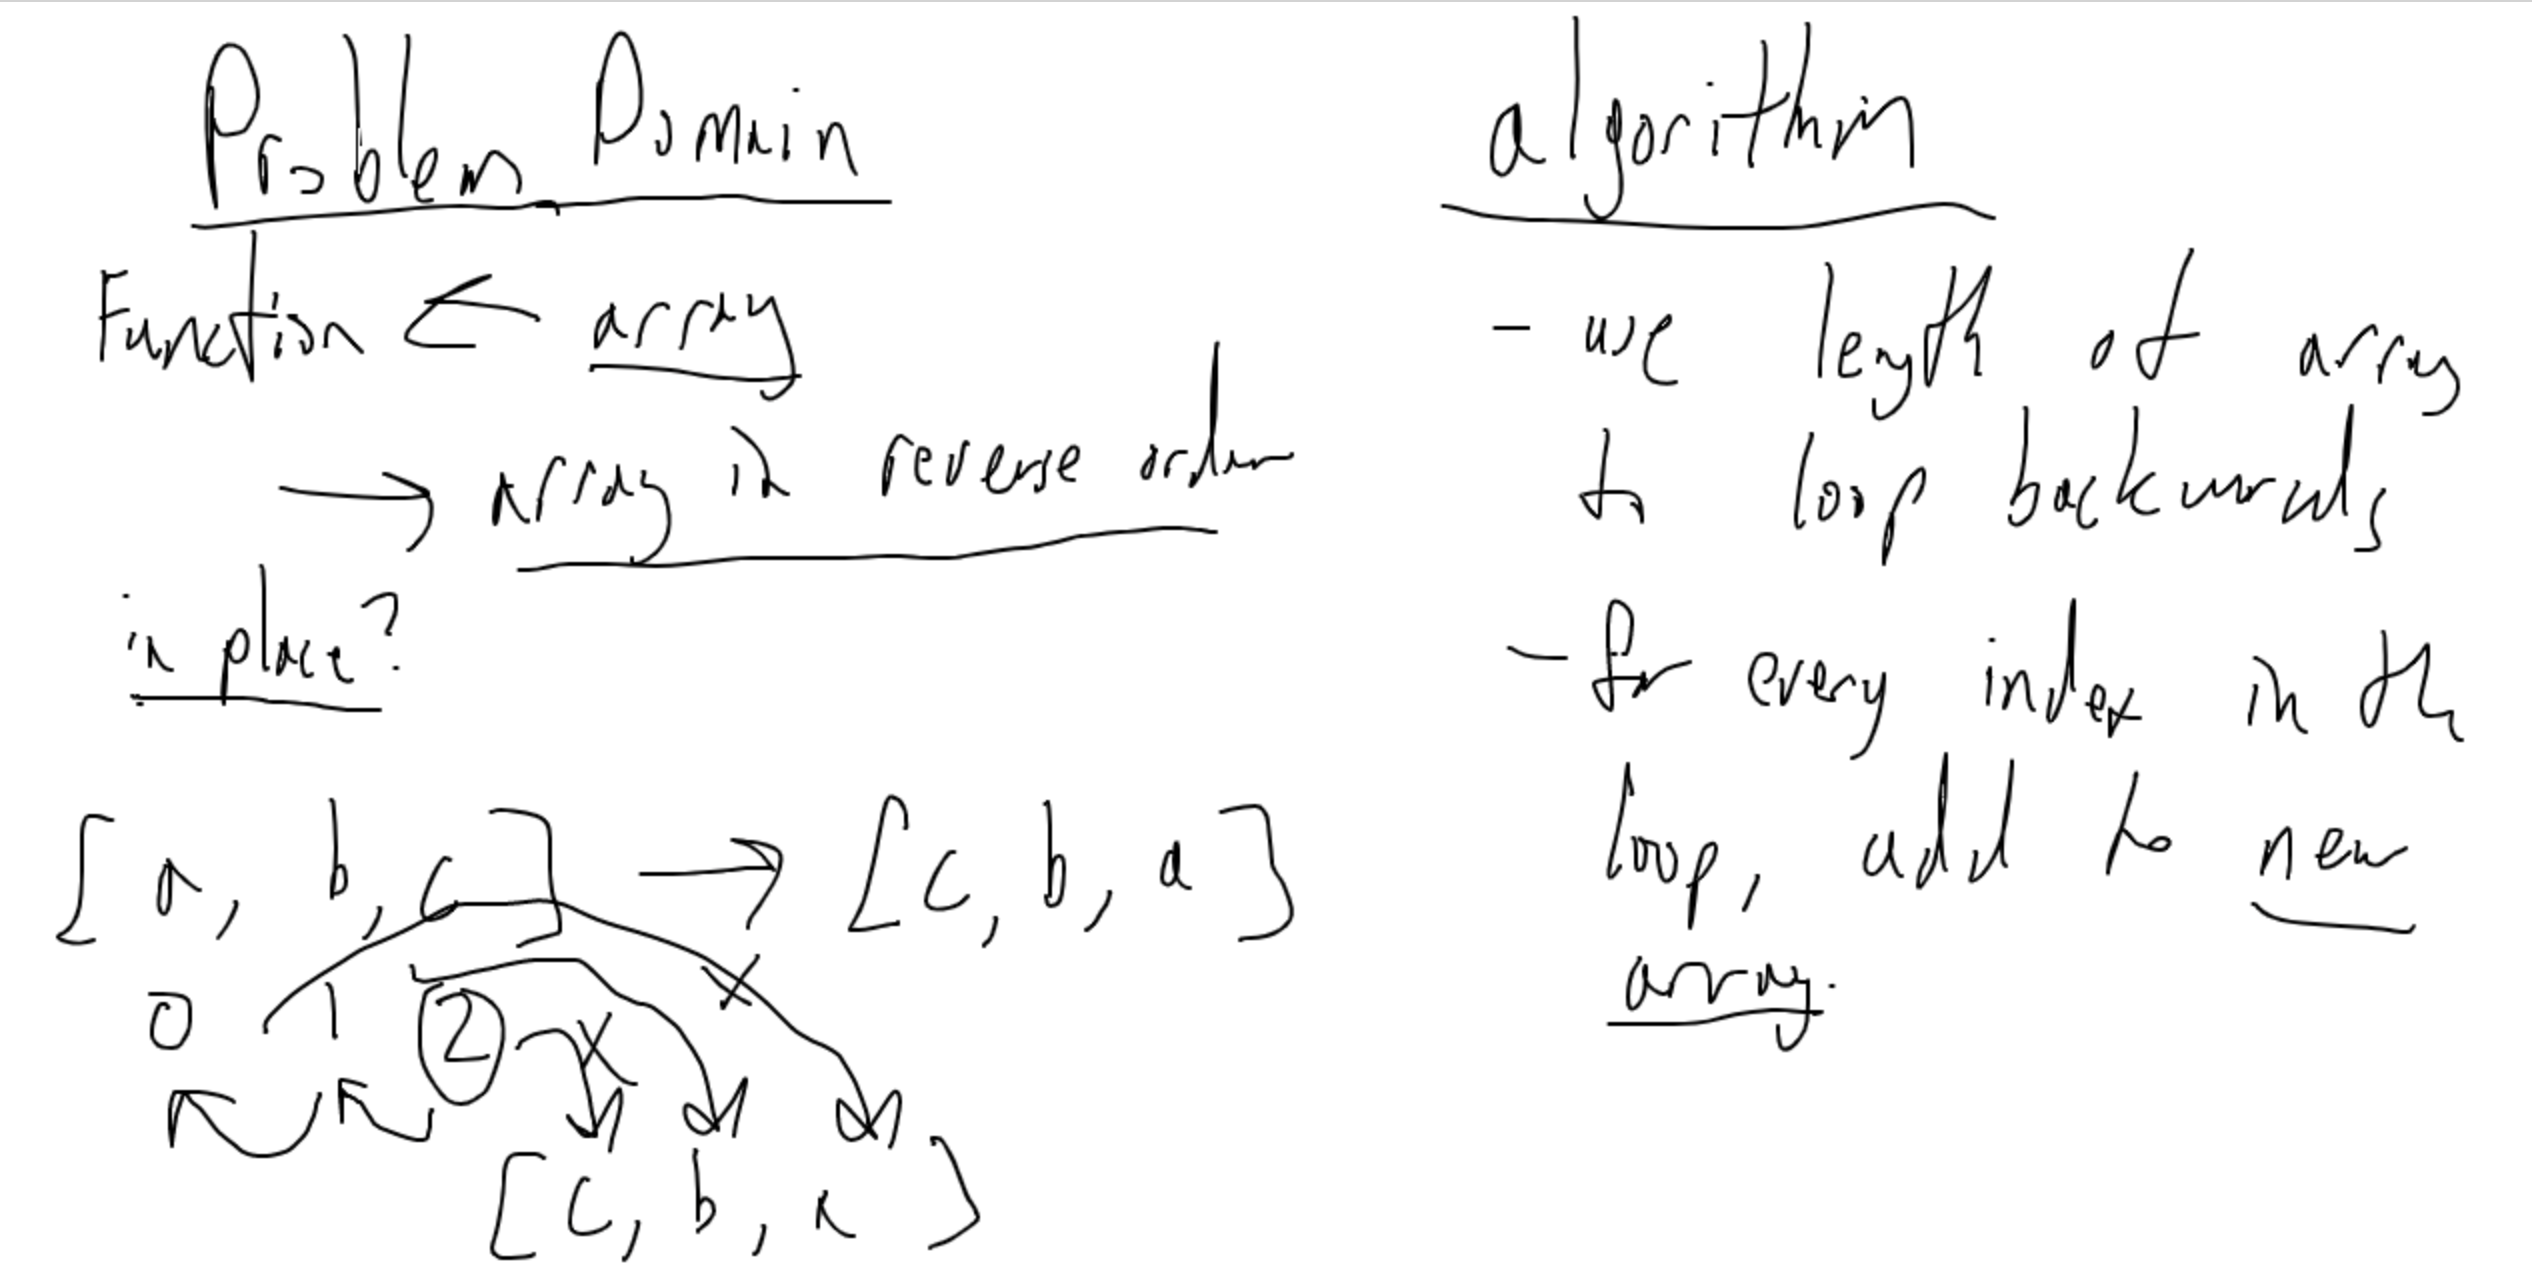 Problem Domain
Function ← array
→ array in reverse order
in place?
[a, b, c] → [c, b, a]
0 1 2
[c, b, a]
algorithm
- use length of array
to loop backwards
- for every index in th
loop, add to new
array.